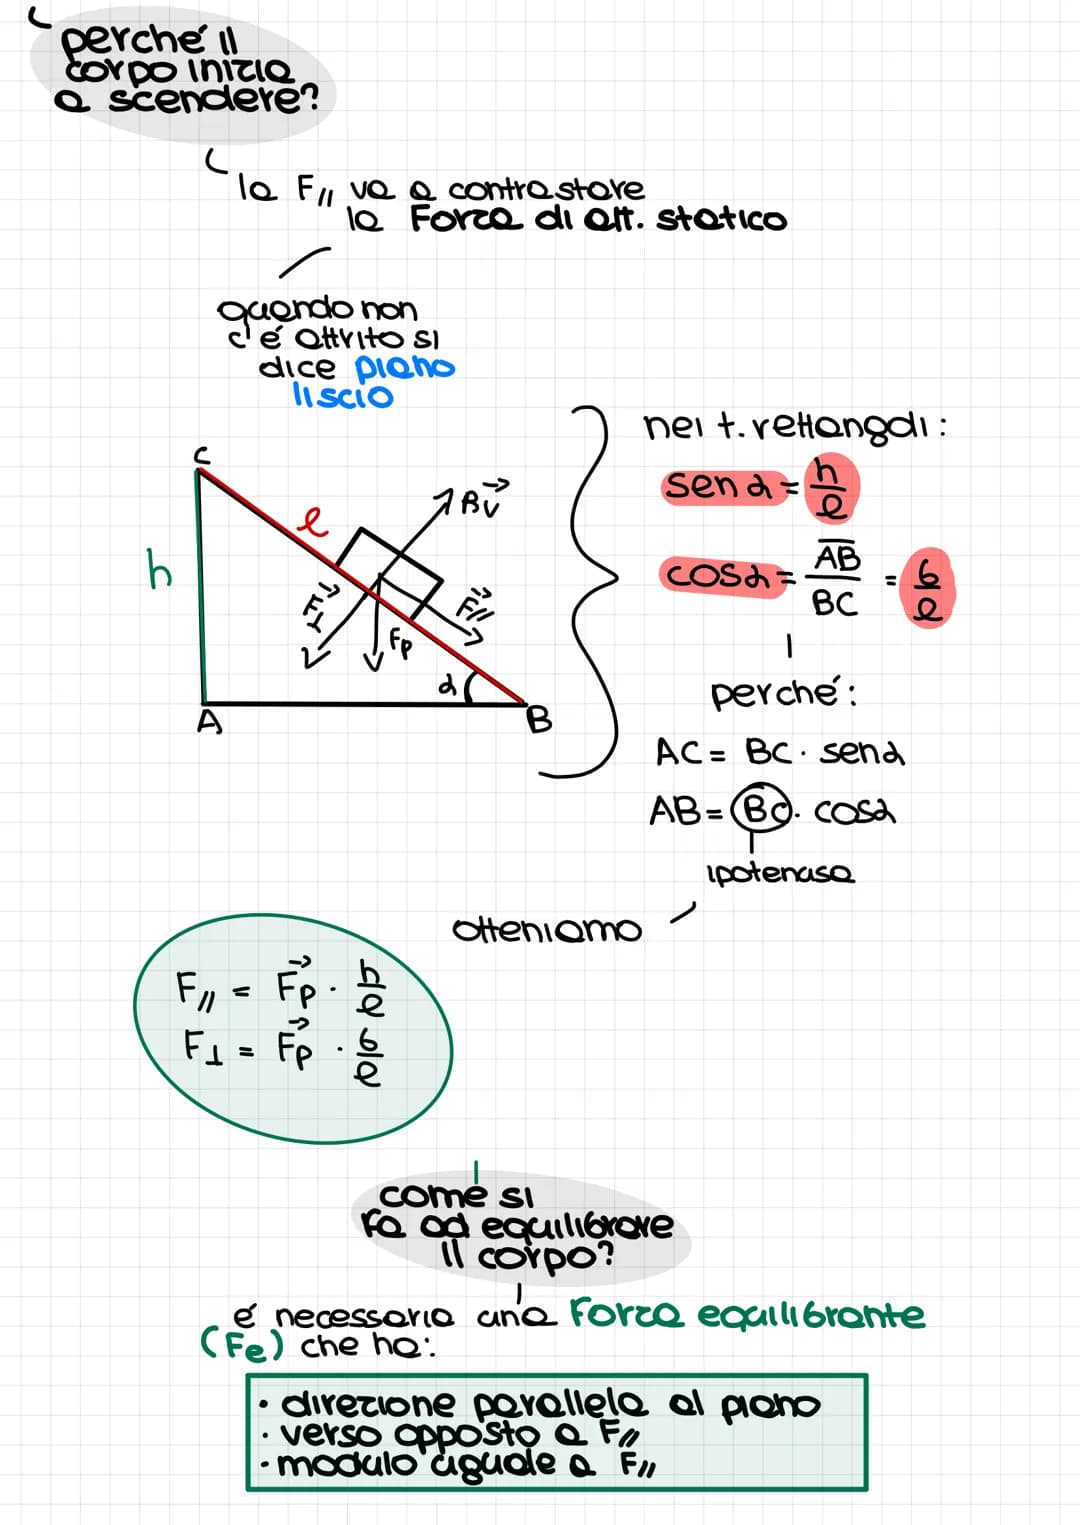 perché il
corpo inizia
a scendere?
la F// va a contrastare
la Forza di att. statico
quando non
c'é attrito si
dice piano
liscio
nei t. rettangoli:
sen α = h/l
cos α = AB/BC = b/l
perché:
AC = BC · sen α
AB = BC · cos α
ipotenusa
otteniamo
C
l
h
Rv
F⊥
Fp
F//
α
A
B
F// = Fp · h/l
F⊥ = Fp · b/l
come si
fa ad equilibrare
il corpo?
é necessaria una Forza equilibrante
(Fe) che ha:
· direzione parallela al piano
· verso opposto a F//
· modulo uguale a F//